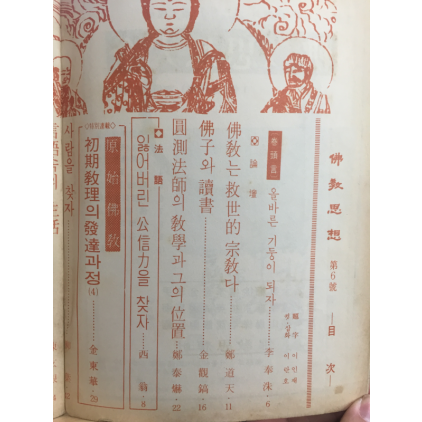 佛敎思想 第6號 —目次—
題字
卷頭言 올바른 기둥이 되자………李奉洙·6
論壇
佛敎는 救世的 宗敎다………鄭道天·11
佛子와 讀書………金觀鎬·16
圓測法師의 敎學과 그의 位置……鄭泰爀·22
法語
잃어버린 公信力을 찾자………西翁·8
原始佛敎
初期敎理의 發達과정(4)………金東華·29
사람을 찾자